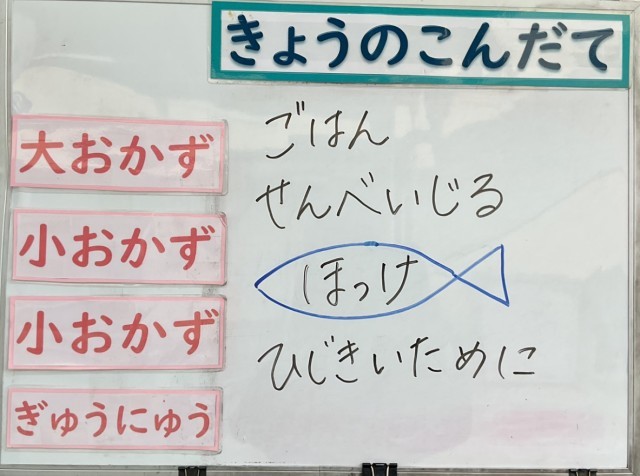 きょうのこんだて
ごはん
大おかず
せんべいじる
小おかず
ほっけ
小おかず
ひじきいために
ぎゅうにゅう